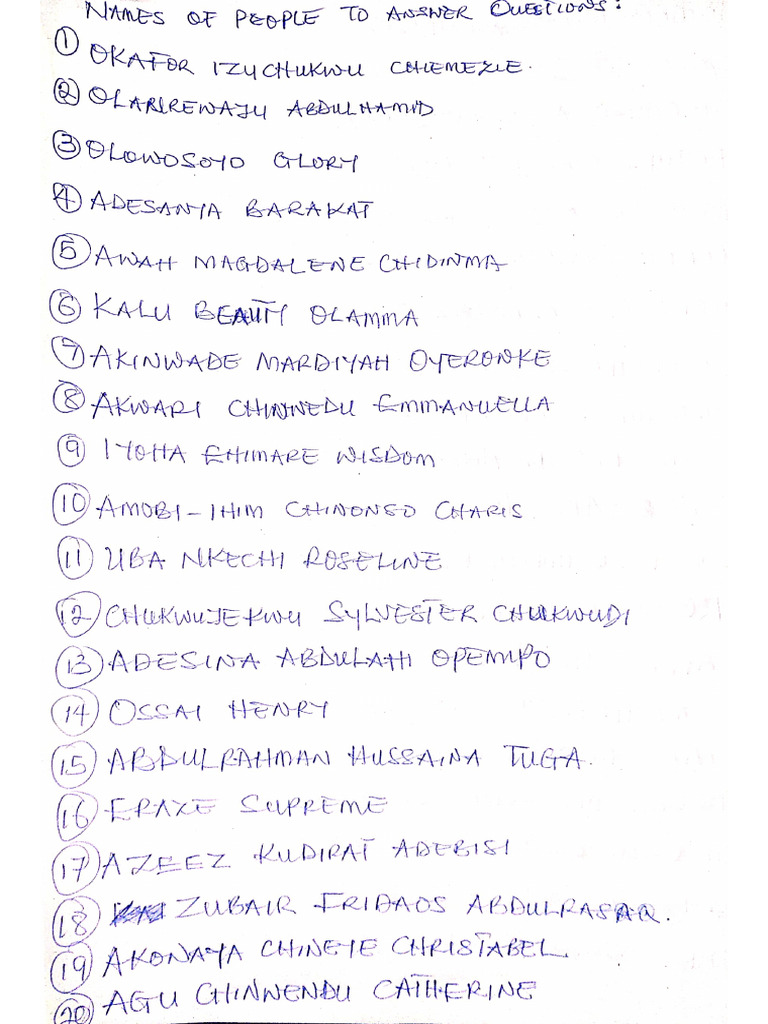 NAMES OF PEOPLE TO ANSWER QUESTIONS:
1 OKAFOR IZUCHUKWU CHEMEZIE.
2 OLANREWAJU ABDULHAMID
3 OLOWOSOYO GLORY
4 ADESANYA BARAKAT
5 AWAH MAGDALENE CHIDINMA
6 KALU BEAUTY OLAMMA
7 AKINWADE MARDIYAH OYERONKE
8 AKWARI CHINNEDU EMMANUELLA
9 IYOHA EHIMARE WISDOM
10 AMOBI-IHIM CHINONSO CHARIS
11 UBA NKECHI ROSELINE
12 CHUKWUJEKWU SYLVESTER CHUKWUDI
13 ADESINA ABDULAHI OPEMIPO
14 OSSAI HENRY
15 ABDULRAHMAN HUSSAINA TUGA.
16 SUPREME
17 AZEEZ KUDIRAT ADEBISI
18 ZUBAIR FRIDAOS ABDULRASAQ.
19 AKONAYA CHINEYE CHRISTABEL.
20 AGU CHINWENDU CATHERINE